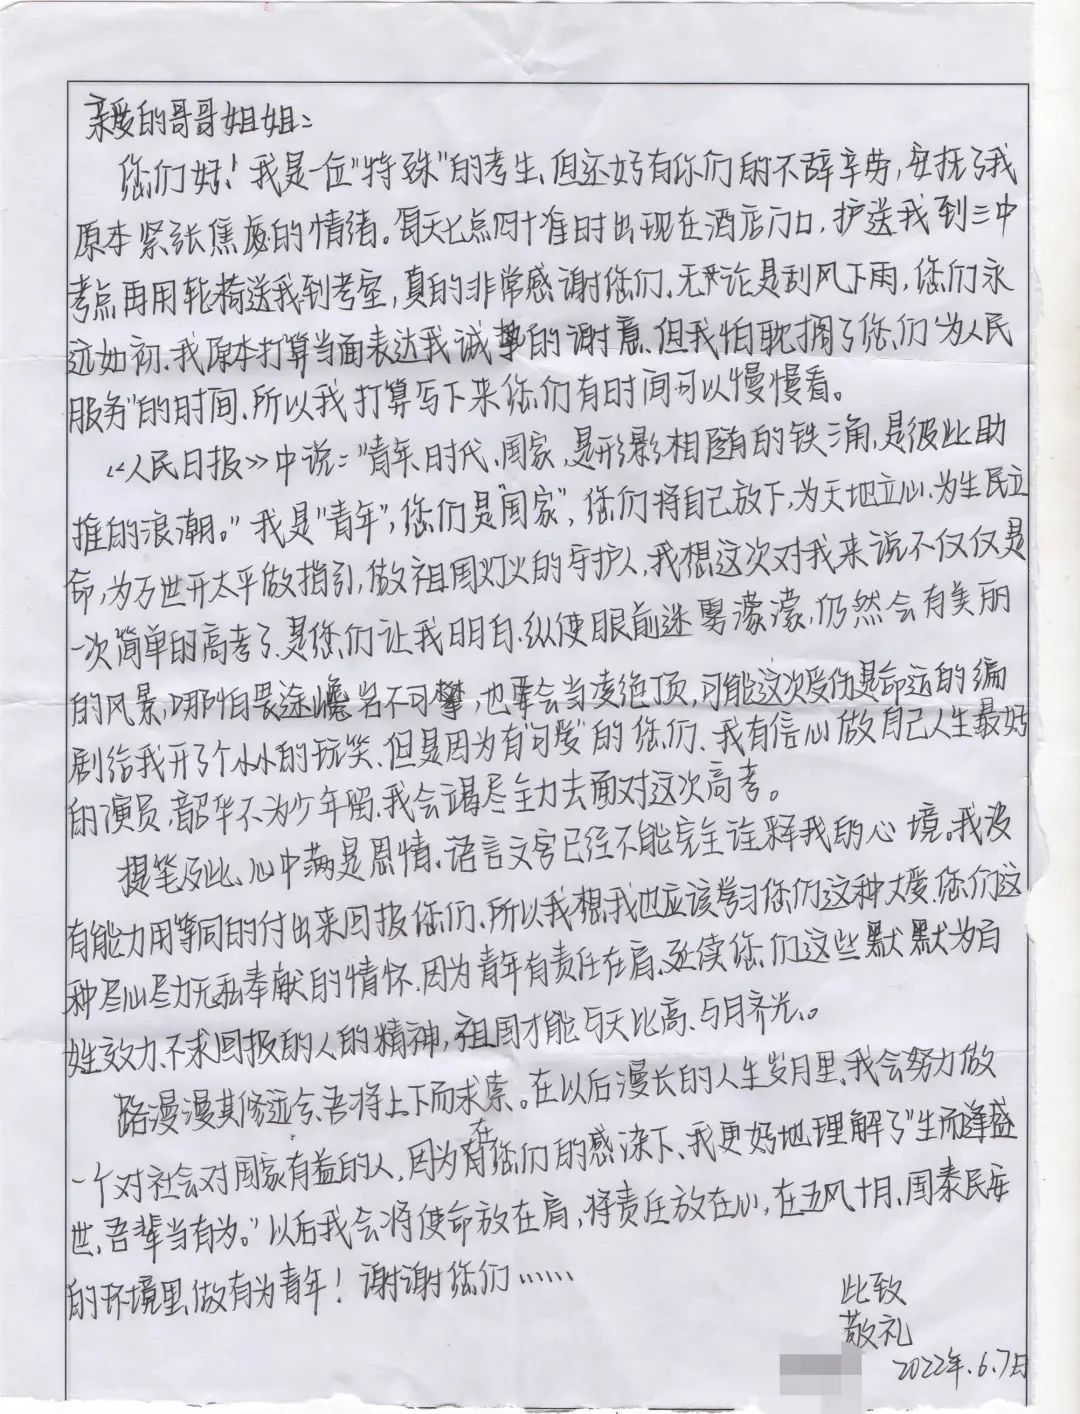 亲爱的哥哥姐姐：
您们好！我是一位“特殊”的考生、但还好有你们的不辞辛劳，安抚了我
原本紧张焦虑的情绪。每天七点四十准时出现在酒店门口，护送我到三中
考点再用轮椅送我到考室，真的非常感谢您们、无论是刮风下雨，您们永
远如初、我原本打算当面表达我诚挚的谢意、但我怕耽搁了您们“为人民
服务”的时间、所以我打算写下来您们有时间可以慢慢看。
《人民日报》中说：“青年、时代、国家、是形影相随的铁三角，是彼此助
推的浪潮。”我是“青年”，您们是“国家”，您们将自己放下，为天地立心、为生民立
命，为万世开太平做指引，做祖国灯火的守护人，我想这次对我来说不仅仅是
一次简单的高考了、是您们让我明白、纵使眼前迷雾濛濛，仍然会有美丽
的风景，哪怕畏途巉岩不可攀，也要会当凌绝顶，可能这次受伤是命运的编
剧给我开了个小小的玩笑、但是因为有“可爱”的您们、我有信心做自己人生最好
的演员，韶华不为少年留、我会竭尽全力去面对这次高考。
提笔及此、心中满是恩情、语言文字已经不能完全诠释我的心境。我没
有能力用等同的付出来回报您们、所以我想、我也应该学习您们这种大爱、您们这
种尽心尽力无私奉献的情怀、因为青年有责任在肩、延续您们这些默默为百
姓效力、不求回报的人的精神，祖国才能与天比高、与月齐光、。
路漫漫其修远兮、吾将上下而求索。在以后漫长的人生岁月里、我会努力做
一个对社会对国家有益的人，因为在您们的感染下、我更好地理解了“生而逢盛
世，吾辈当有为。”以后我会将使命放在肩，将责任放在心，在五风十月、国泰民安
的环境里、做有为青年！谢谢您们……
此致
敬礼
2022年.6.7日